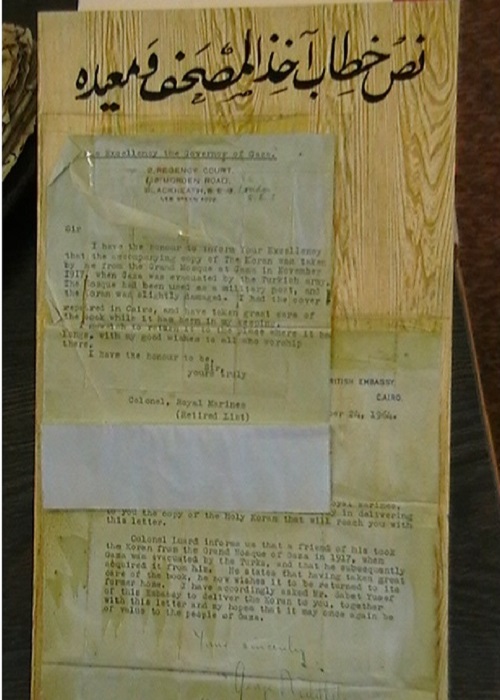 نص خطاب آخذ المصحف ومعيده
Excellency the Governor of Gaza.
REGENCY COURT,
MORDEN ROAD,
BLACKHEATH, S.E.3. London
S.E.3
Sir
I have the honour to inform Your Excellency
that the accompanying copy of The Koran was taken
by me from the Grand Mosque at Gaza in November
1917, when Gaza was evacuated by the Turkish army.
The Mosque had been used as a military post, and
the Koran was slightly damaged. I had the cover
repaired in Cairo, and have taken great care of
the book while it has been in my keeping.
I wish to return it to the place where it be
longs, with my good wishes to all who worship
there.
I have the honour to be,
Sir,
yours truly
Colonel, Royal Marines
(Retired List)
RITISH EMBASSY
CAIRO.
ber 24, 1964.
oyal Marines,
in delivering
to you the copy of the Holy Koran that will reach you with
this letter.
Colonel Luard informs us that a friend of his took
the Koran from the Grand Mosque of Gaza in 1917, when
Gaza was evacuated by the Turks, and that he subsequently
acquired it from him. He states that having taken great
care of the book, he now wishes it to be returned to its
former home. I have accordingly asked Mr. Sabet Yusef
of this Embassy to deliver the Koran to you, together
with this letter and my hopes that it may once again be
of value to the people of Gaza.
Yours sincerely